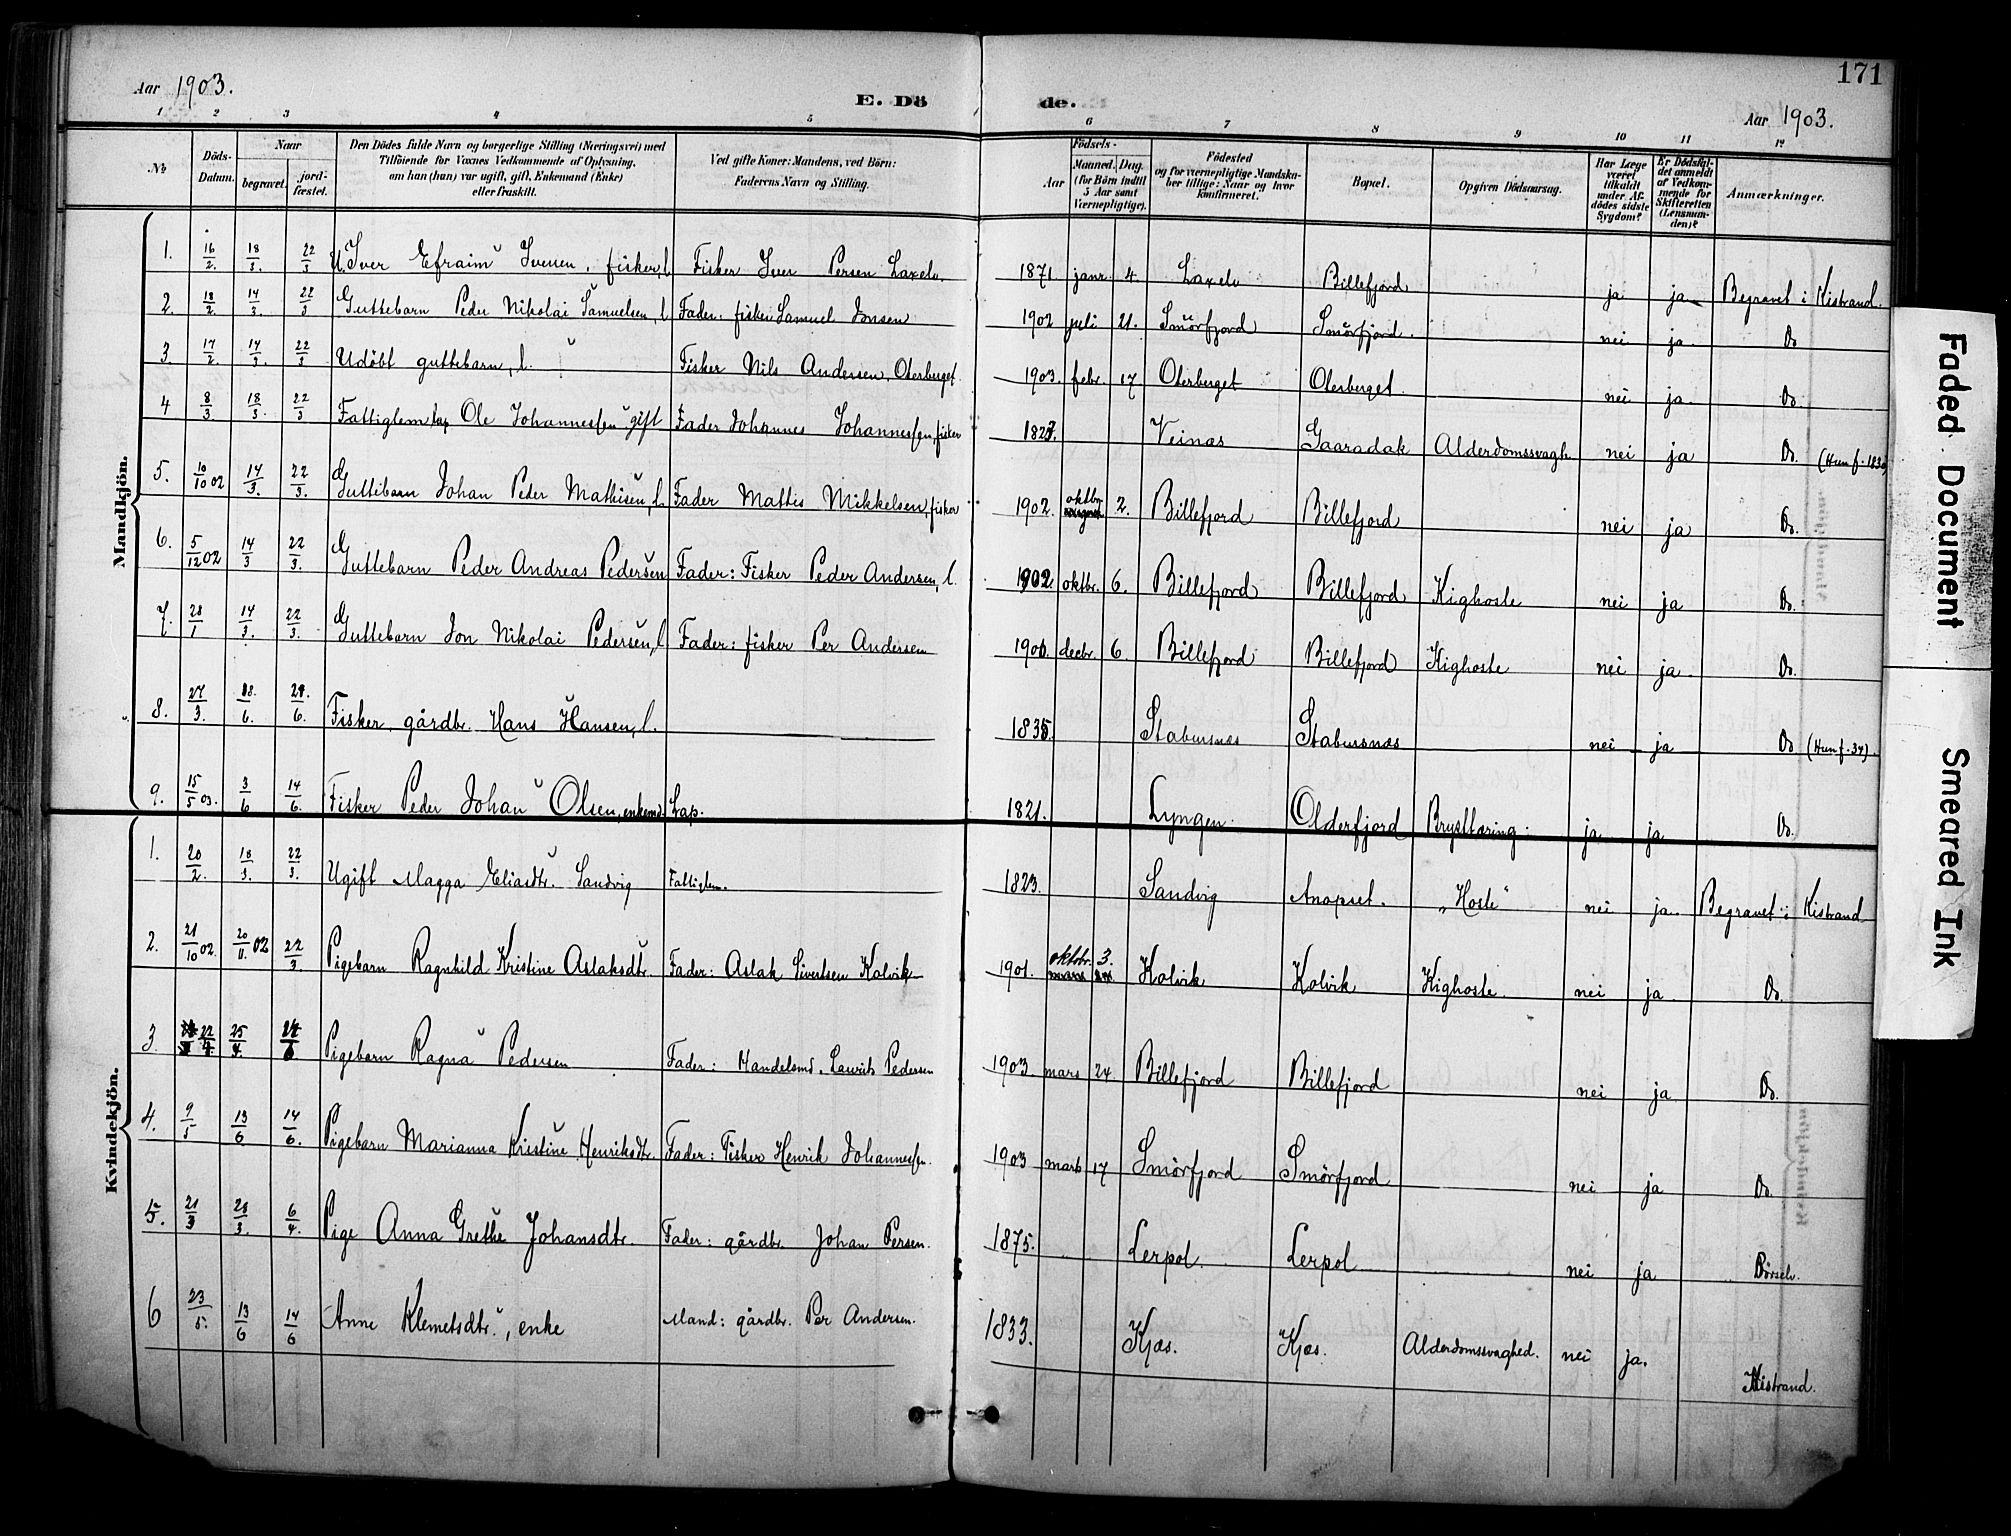 Aar 1903.
E. Dö
de.
171
Aar 1903.
1 2 3 4 5 6 7 8 9 10 11 12
No
Döds-Datum.
Naar
begravet.
jord-fæstet.
Den Dödes fulde Navn og borgerlige Stilling (Næringsvei) med
Tilföiende for Voxnes Vedkommende af Oplysning,
om han (hun) var ugift, gift, Enkemand (Enke)
eller fraskilt.
Ved gifte Koner: Mandens, ved Börn:
Faderens Navn og Stilling.
Födsels-
Aar
Maaned. Dag.
(for Börn indtil
5 Aar samt
Værnepligtige).
Födested
og for værnepligtige Mandska-
ber tillige: Naar og hvor
konfirmeret.
Bopæl.
Opgiven Dödsaarsag.
Har Læge
været
tilkaldt
under Af-
dödes sidste
Sygdom?
Er Dödsfal-
det anmeldt
af Vedkom-
mende for
Skifteretten
(Lensman-
den)?
Anmærkninger.
Mandkjön.
1. 16/2. 18/3. 22/3 Iver Efraim Iversen, fisker, l Fisker Iver Persen Laxelv. 1871 janr. 4. Laxelv Billefjord ja ja Begravet i Kistrand.
2. 18/2. 14/3. 22/3 Guttebarn Peder Nikolai Samuelsen, l Fader: fisker Samuel Jonsen 1902 juli 21. Smörfjord Smörfjord. nei ja Do
3. 17/2 14/3. 22/3 Udöbt guttebarn, l. Fisker Nils Andersen, Oterberget 1903. febr. 17 Oterberget Oterberget. nei ja. Do.
4 8/3 18/3. 22/3 Fattiglem Ole Johannessen gift Fader Johannes Johannessen, fisker Veinæs Gaaradak Alderdomssvagh. nei ja Do. (Hun f. 1830)
5. 10/10 02 14/3. 22/3. Guttebarn Johan Peder Mathisen, l. Fader Mattis Mikkelsen, fisker 1902. oktbr. 2. Billefjord Billefjord nei ja Do.
6. 5/12 02 14/3 22/3. Guttebarn Peder Andreas Pedersen Fader: Fisker Peder Andersen, l. 1902. oktbr. 6. Billefjord Billefjord Kighoste nei ja Do.
7. 28/1 14/3. 22/3. Guttebarn Jon Nikolai Pedersen, l Fader: fisker Per Andersen decbr. 6. Billefjord Billefjord Kighoste nei ja. Do.
8. 27/3. Fisker, gårdbr. Hans Hansen, l. Stabursnæs Stabursnæs nei ja Do (Hun f. 37).
9. 15/5 03. 3/6 14/6. Fisker Peder Johan Olsen, enkemd. Lap. 1821. Lyngen. Olderfjord Brysttæring. ja ja Do.
Kvindekjön.
1. 20/2. 18/3. 22/3. Ugift Magga Eliasdtr. Sandvig Fattiglem. 1823. Sandvig Anopset. "Hoste" nei ja. Begravet i Kistrand
2. 21/10 02. 20/11. 02 22/3. Pigebarn Ragnhild Kristine Aslaksdtr. Fader: Aslak Sivertsen Kolvik 1901. oktbr. 3. Kolvik Kolvik Kighoste. nei ja Do.
3 22/4 25/4. Pigebarn Ragna Pedersen Fader: Handelsmd. Laurits Pedersen 1903. mars 24. Billefjord Billefjord nei ja Do.
4. 9/5 13/6 14/6. Pigebarn Marianna Kristine Henriksdtr. Fader: Fisker Henrik Johannessen. 1903 mars 17 Smörfjord Smörfjord nei ja Do.
5. 21/3 28/3. 6/4. Pige Anna Grethe Johansdtr. Fader: gårdbr. Johan Persen. 1875. Lerpol. Lerpol nei ja Börselv.
6 23/5. 13/6 14/6 Anne Klemetsdtr., enke Mand: gårdbr. Per Andersen. 1833. Kjæs. Kjæs. Alderdomssvaghed. nei ja. Kistrand.
Faded Document
Smeared Ink